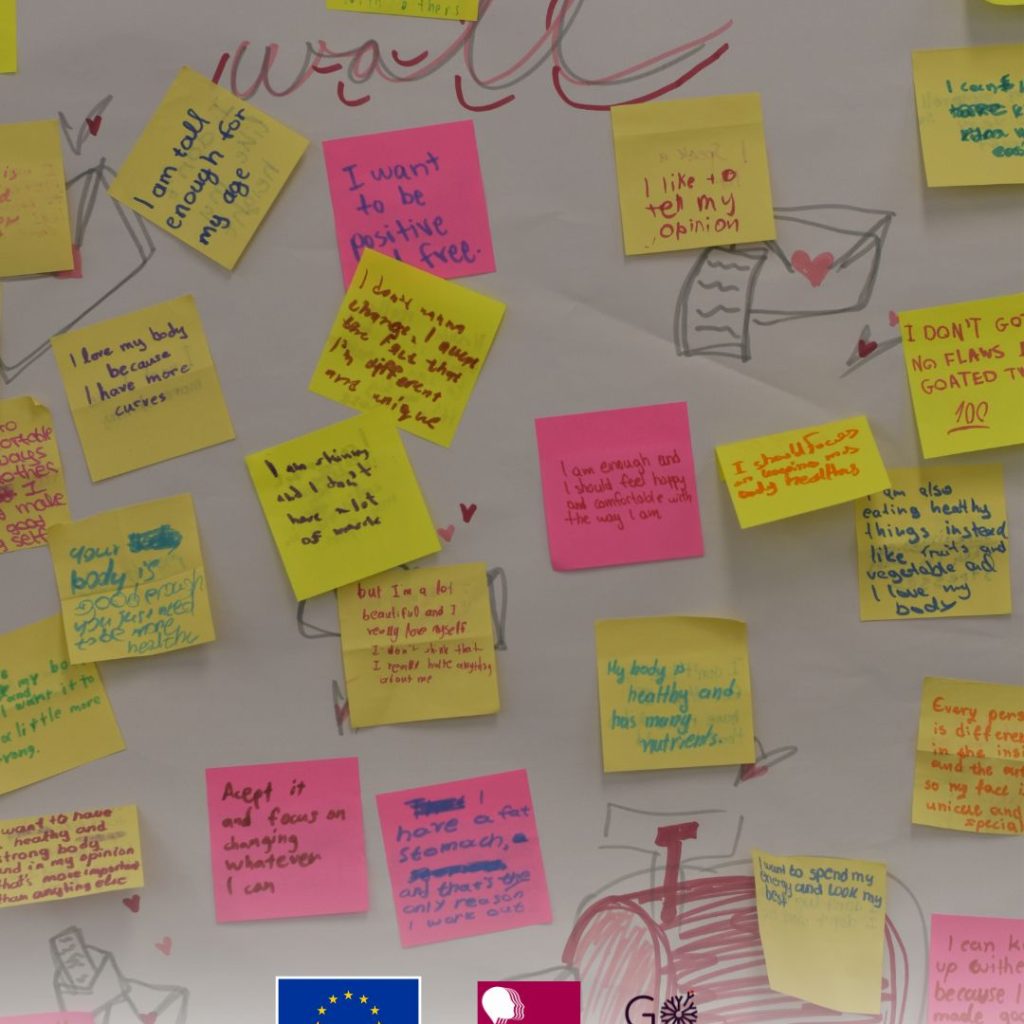 with others
wall
I am tall
enough for
my age
I want
to be
positive
free.
I like to
tell my
opinion
I love my body
because
I have more
curves
I don't
change. I
the fact that
I'm different
and unique
I DON'T GO
NO FLAWS
GOATED
100
I am
and I don't
have a lot
of
I am enough and
I should feel happy
and comfortable with
the way I am
I should focus
on
body healthy
I am also
eating healthy
things instead
like fruits and
vegetable and
I love my
body
I make
good
your
body is
good enough
you just need
to be more
healthy
but I'm a lot
beautiful and I
really love myself
I don't think that
I really hate anything
about me
my bo
and
I want it to
a little more
rong.
My body is
healthy and
has many
nutrients.
Every pers
is differen
in the insi
and the out
so my face is
unique and
special
Acept it
and focus on
changing
whatever
I can
I
have a fat
stomach,
and that's the
only reason
I work out
want to have
healthy and
strong body
and in my opinion
that's more important
than anything else
I want to spend my
energy and look my
best
I can k
up withe
because I
made good
G